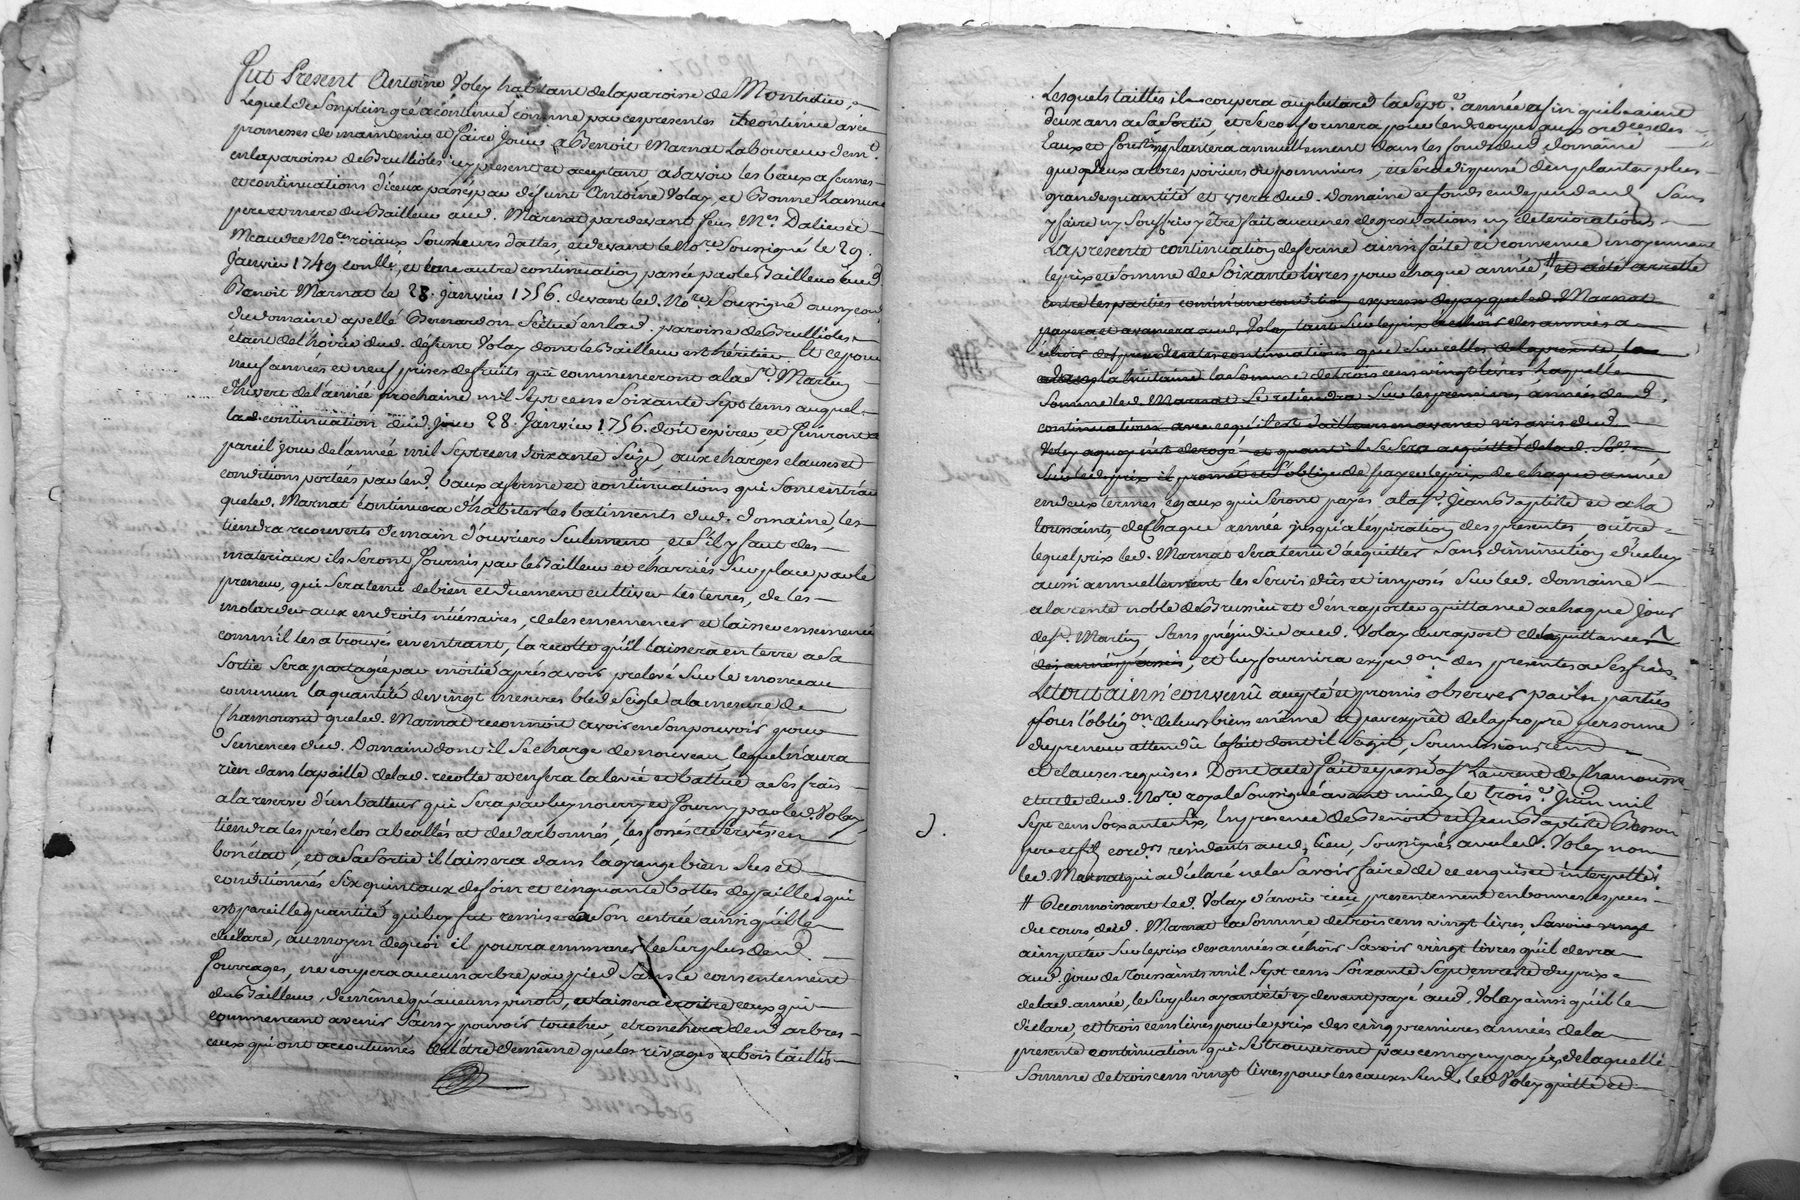 Fut Present Antoine Voley habitant de la paroisse de Montrotier,
Lequel de son plein gré a continué comme par ces presentes il continue avec
promesses de maintenir et faire jouir a Benoit Marnat Laboureur demt.
en la paroisse de Brullioles icy present et aceptant a savoir les beaux a fermes
et continuations d'iceux passés par defunt Antoine Volay, et Bonne Lamure
pere et mere du Bailleur aud. Marnat pardevant feus Mes. Dalier et
Meaudre Nores. roiaux sous leurs dattes, et devant le Nore. soussigné le 29.
Janvier 1749 conllé, et une autre continuation passée par le Bailleur aud.
Benoit Marnat le 28. janvier 1756. devant led. Nore. soussigné
du domaine apellé Bernardon scitué en lad. paroisse de Brullioles
étant de l'hoirie dud. defunt Volay dont le Bailleur est héritier. Et ce pour
neuf années et neuf prises de fruits qui commenceront a la St. Martin
d'hivert de l'année prochaine mil sept cens soixante sept tems auquel
lad. continuation dud. jour 28. Janvier 1756. doit expirer, et finiront a
pareil jour de l'année mil sept cens soixante seize, aux charges clauses et
conditions portées par lesd. baux a ferme et continuations qui sont entr'autres
que led. Marnat continuera d'habiter les batiments dud. domaine, les
tiendra recouverts de main d'ouvriers seulement, et s'il y faut des
materiaux ils seront fournis par le Bailleur et charriés sur place par le
preneur, qui sera tenu de bien et duement cultiver les terres, de les
molarder aux endroits nécéssaires, de les ensemencer et laisser ensemencé
comm'il les a trouvés en entrant, la recolte qu'il laissera en terre a sa
sortie sera partagée par moitié après avoir prelevé sur le monceau
commun la quantité de vingt mesures bled seigle a la mesure de
Chamousset que led. Marnat reconnoit avoir en son pouvoir pour
semences dud. Domaine dont il se charge de nouveau, lequel n'aura
rien dans la paille de lad. recolte et en fera la levée et battue a ses frais
a la reserve d'un batteur qui sera par luy nourry et fourny par led. Volay,
tiendra les prés clos abeallés et des arbonnés, les fossés et servis en
bon état, et a sa sortie il laissera dans la grange bien secs et
conditionnés six quintaux de foin et cinquante bottes de paille, qui
est pareille quantité qui luy fut remise a son entrée ainsi qu'il le
déclare, au moyen de quoi il pourra emmener le surplus desd.
fourrages, ne coupera aucun arbre par pied sans le consentement
du Bailleur, de même qu'aucuns personn, et laissera croitre ceux qui
commencent a venir sans y pouvoir toucher, etronchera desd. arbres
ceux qui ont accoutumés de l'être de même que les rivages et bois taillis
Lesquels taillis il coupera au plutard la septe. année afin qu'ils aient
deux ans a sa sortie, et se conformera pour lesd. coupes aux ordces. des
Eaux et forets, plantera annuellement dans les fonds dud. domaine
que deux arbres poiriers ou pommiers, et sera dispensé d'en planter plus
grande quantité et usera dud. Domaine et fonds en dependend sans
y faire ny souffrir y être fait aucunes degradations ny deteriorations.
La presente continuation de ferme ainsi faite et convenue moyennant
le prix et somme de soixante livres pour chaque année, # et a été arretté
entre les parties comm'une condition expresse
payera et avancera aud. Volay tant sur le prix a echoir des années a
echoir des precedentes continuations que sur celles de la presente
la somme de trois cens vingt livres laquelle
somme led. Marnat se retiendra sur les premieres années desd.
continuations avec ce qu'il est d'ailleurs en avance vis avis dud.
Volay aquoy n'est derogé et quant il se sera acquitté de lad. Se.
sur led. prix il promet et s'oblige de payer le prix de chaque année
en deux termes egaux qui seront payés a la St. Jean Baptiste et a la
toussaints de chaque année jusqu'a l'expiration des presentes outre
lequel prix led. Marnat sera tenu d'acquitter sans diminution d'icelluy
aussi annuellement les servis dûs et imposés sur led. domaine
a la rente noble de Bressieu et d'en raporter quittance a chaque jour
de St. Martin sans préjudice aud. Volay du raport des quittances
des années passées, et luy fournira expedon. des presentes a ses frais.
Le tout ainsi convenû accepté et promis observer par les parties
sous l'oblign. de leurs biens même et par exprêt de la propre personne
du preneur attendû le fait dont il s'agit soumissions renon.
et clauses requises. Dont acte fait et passé a St Laurent de Chamousset
etude dud. Nore. royal soussigné avant midy le trois e. Juin mil
sept cens soixante six, en presence de Benoit et Jean Baptiste Besson
pere et fils cordrs. residants aud. lieu, soussignés avec led. Voley non
led. Marnat qui a déclaré ne le savoir faire de ce enquis et interpellé.
# Reconnoissant led. Volay d'avoir reçu presentement en bonnes especes
du cours dud. Marnat la somme de trois cens vingt livres, savoir vingt
a imputer sur le prix des années a échoir savoir vingt livres qu'il devra
aud. jour de Toussaints mil sept cens soixante sept en reste du prix
de lad. année, le surplus ayant été cy devant payé aud. Volay ainsi qu'il le
déclare, et trois cens livres pour le prix des cinq premieres années de la
presente continuation qui se trouveront par ce moyen payées, de laquelle
somme de trois cens vingt livres pour les causes susd. led. Voley quitte et